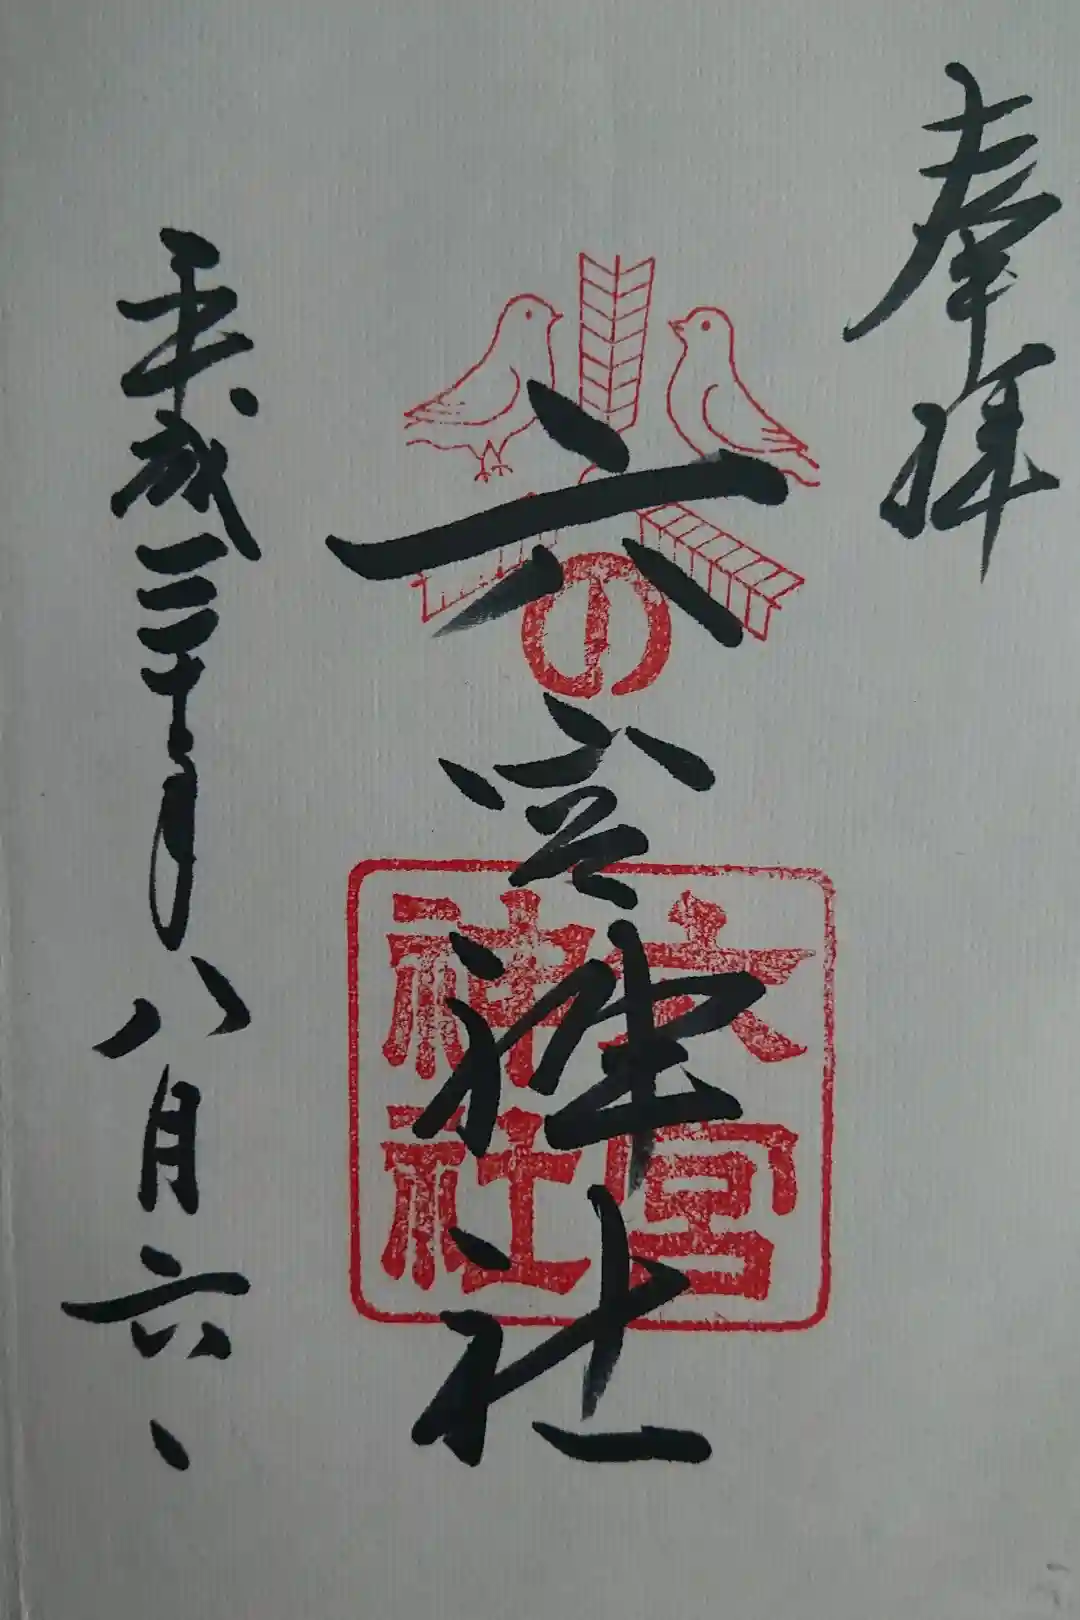 奉拝
六宮神社
の
六宮神社
平成三十年八月六日